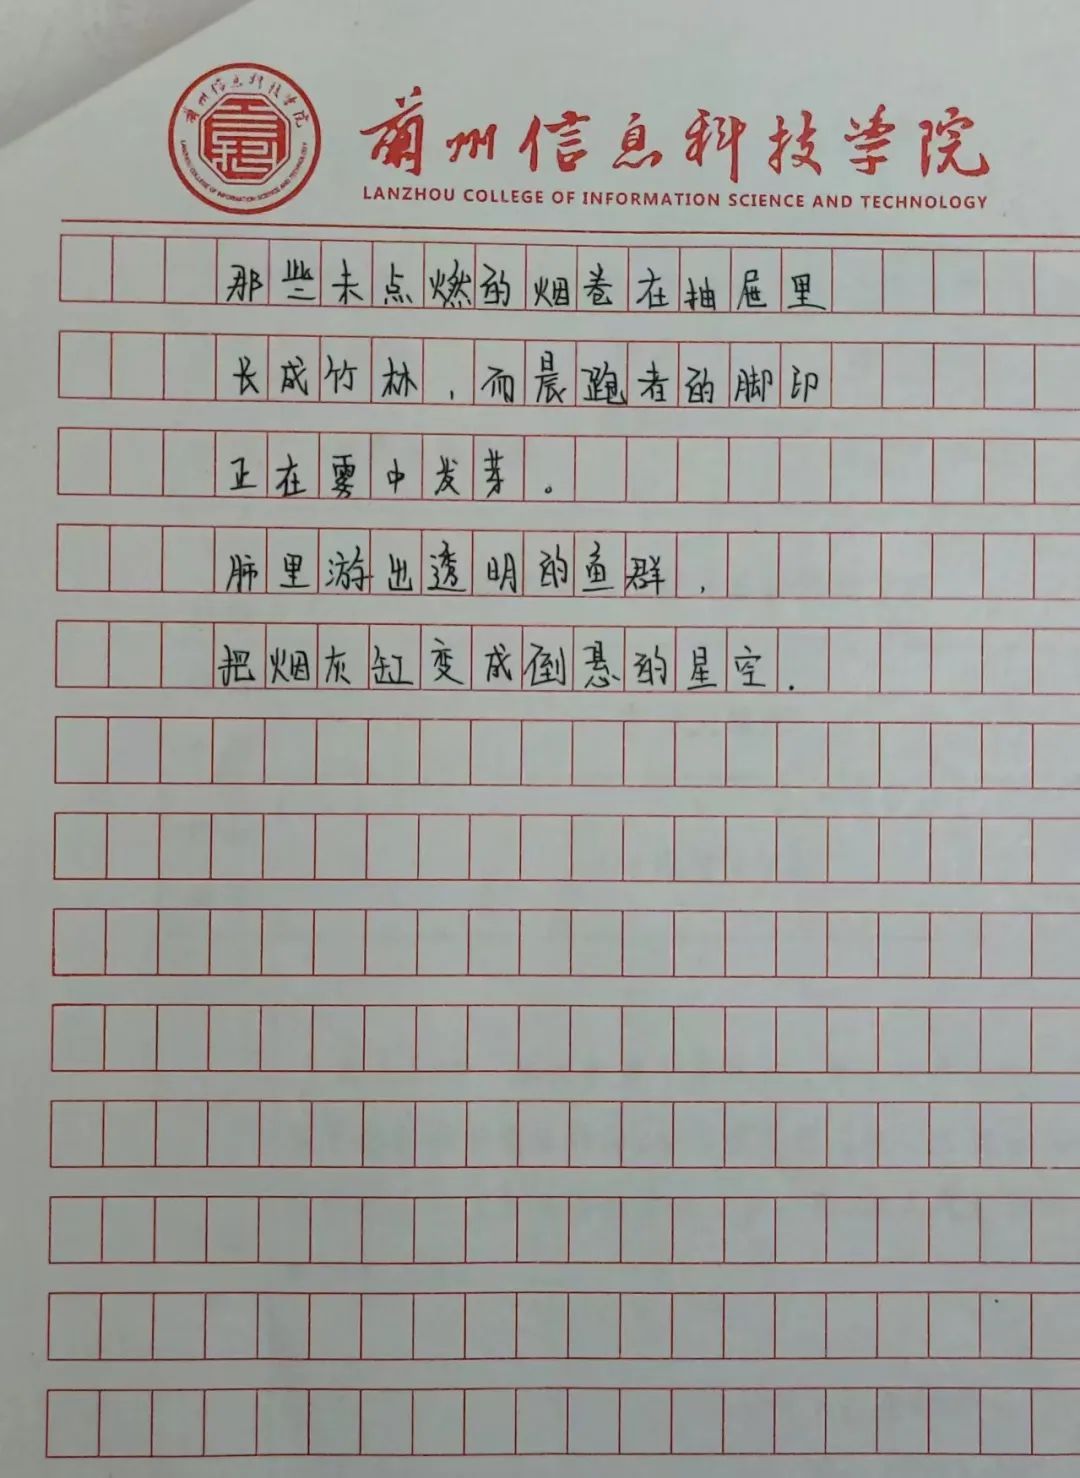 兰州信息科技学院
LANZHOU COLLEGE OF INFORMATION SCIENCE AND TECHNOLOGY
兰州信息科技学院
LANZHOU COLLEGE OF INFORMATION SCIENCE AND TECHNOLOGY
那些未点燃的烟卷在抽屉里
长成竹林，而晨跑者的脚印
正在雾中发芽。
肺里游出透明的鱼群，
把烟灰缸变成倒悬的星空.